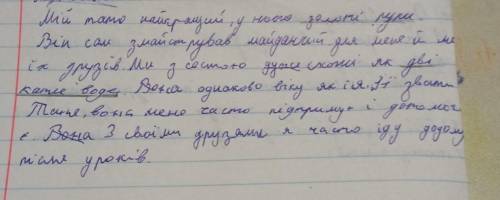 Мій тато найкращий, у нього золоті руки.
Він сам змайстрував майданчик для мене й мо
їх друзів. Ми з сестою дуже схожі як дві
каплі води. Вона однаково віку як і я. Її звати
Таня, вона мене часто підтримує і допомог
є. Вона З своїми друзями я часто іду додому
після уроків.